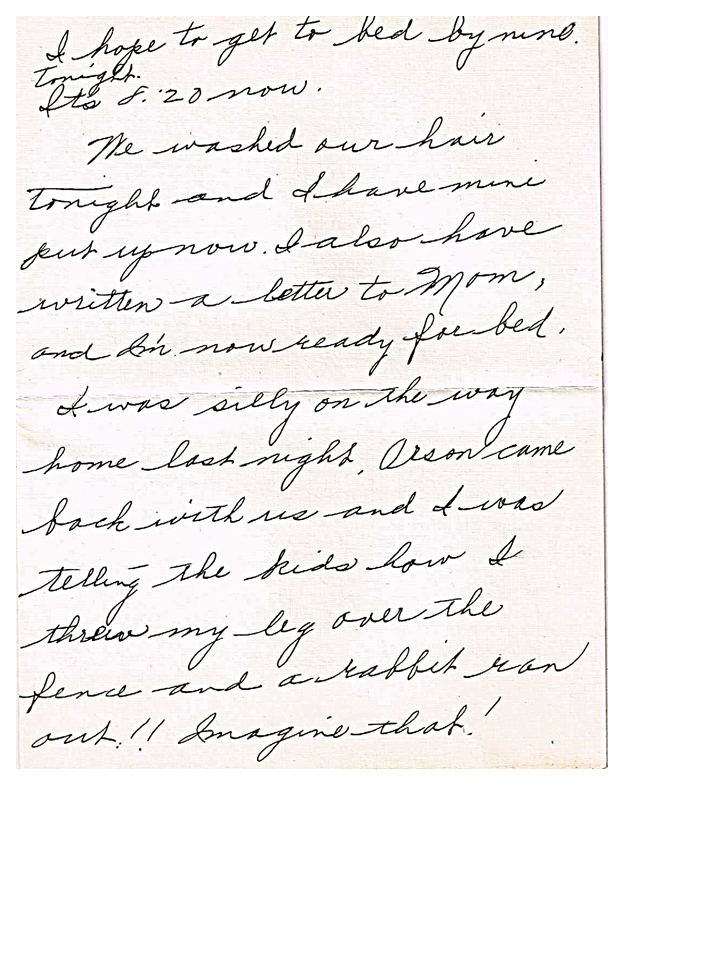 I hope to get to bed by nine.
tonight.
It's 8:20 now.
We washed our hair
tonight and I have mini
put up now. I also have
written a letter to Mom,
and I'm now ready for bed.
I was silly on the way
home last night, Orson came
back with us and I was
telling the kids how I
threw my leg over the
fence and a rabbit ran
out!!! Imagine that!